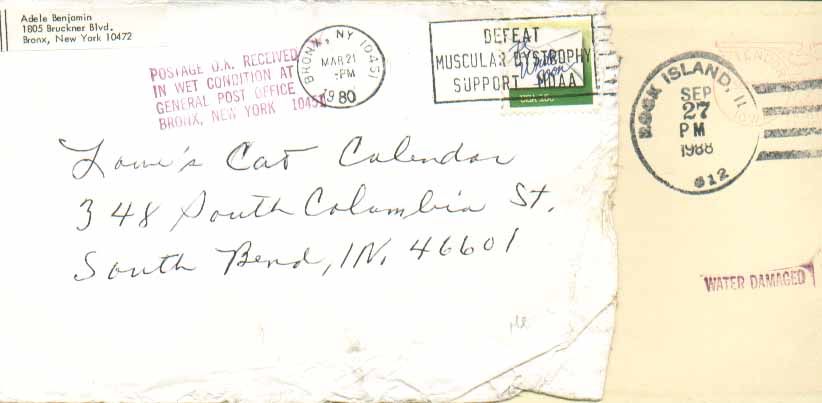 Adele Benjamin
1805 Bruckner Blvd.
Bronx, New York 10472
POSTAGE O.K. RECEIVED
IN WET CONDITION AT
GENERAL POST OFFICE
BRONX, NEW YORK 10451
BRONX, NY 10451
MAR 21
PM
1980
DEFEAT
MUSCULAR DYSTROPHY
SUPPORT MDAA
USA 15c
Lowe's Cat Calendar
348 South Columbia St.
South Bend, IN. 46601
ROCK ISLAND, IL
SEP
27
PM
1988
612
WATER DAMAGED